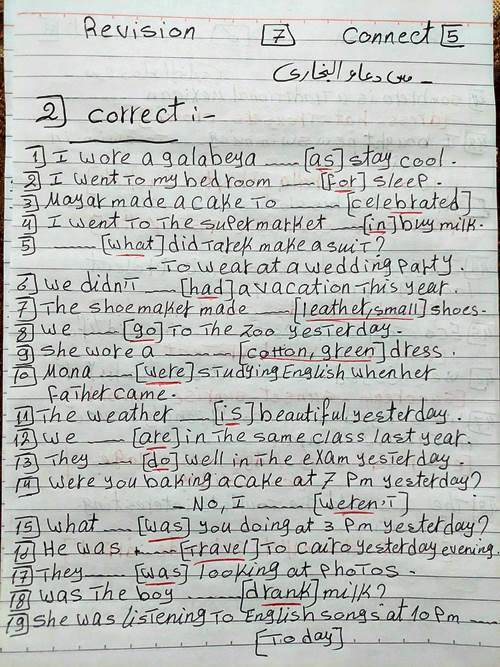 Revision [7] Connect [5]
مس دعاء البخارى -
2] correct :-
1] I wore a galabeya ...... [as] stay cool.
2] I went to my bedroom ...... [for] sleep.
3] Mayar made a cake to ...... [celebrated]
4] I went to the supermarket ...... [in] buy milk.
5] ...... [what] did Tarek make a suit?
- To wear at a wedding party.
6] we didn't ...... [had] a vacation this year.
7] The shoemaker made ...... [leather, small] shoes.
8] we ...... [go] to the zoo yesterday.
9] she wore a ...... [cotton, green] dress.
10] Mona ...... [were] studying English when her
father came.
11] The weather ...... [is] beautiful yesterday.
12] we ...... [are] in the same class last year.
13] They ...... [do] well in the exam yesterday.
14] were you baking a cake at 7 Pm yesterday?
- No, I ...... [weren't]
15] what ...... [was] you doing at 3 Pm yesterday?
16] He was ...... [travel] to Cairo yesterday evening.
17] They ...... [was] looking at photos.
18] was the boy ...... [drank] milk?
19] she was listening to English songs at 10 Pm ......
[To day]